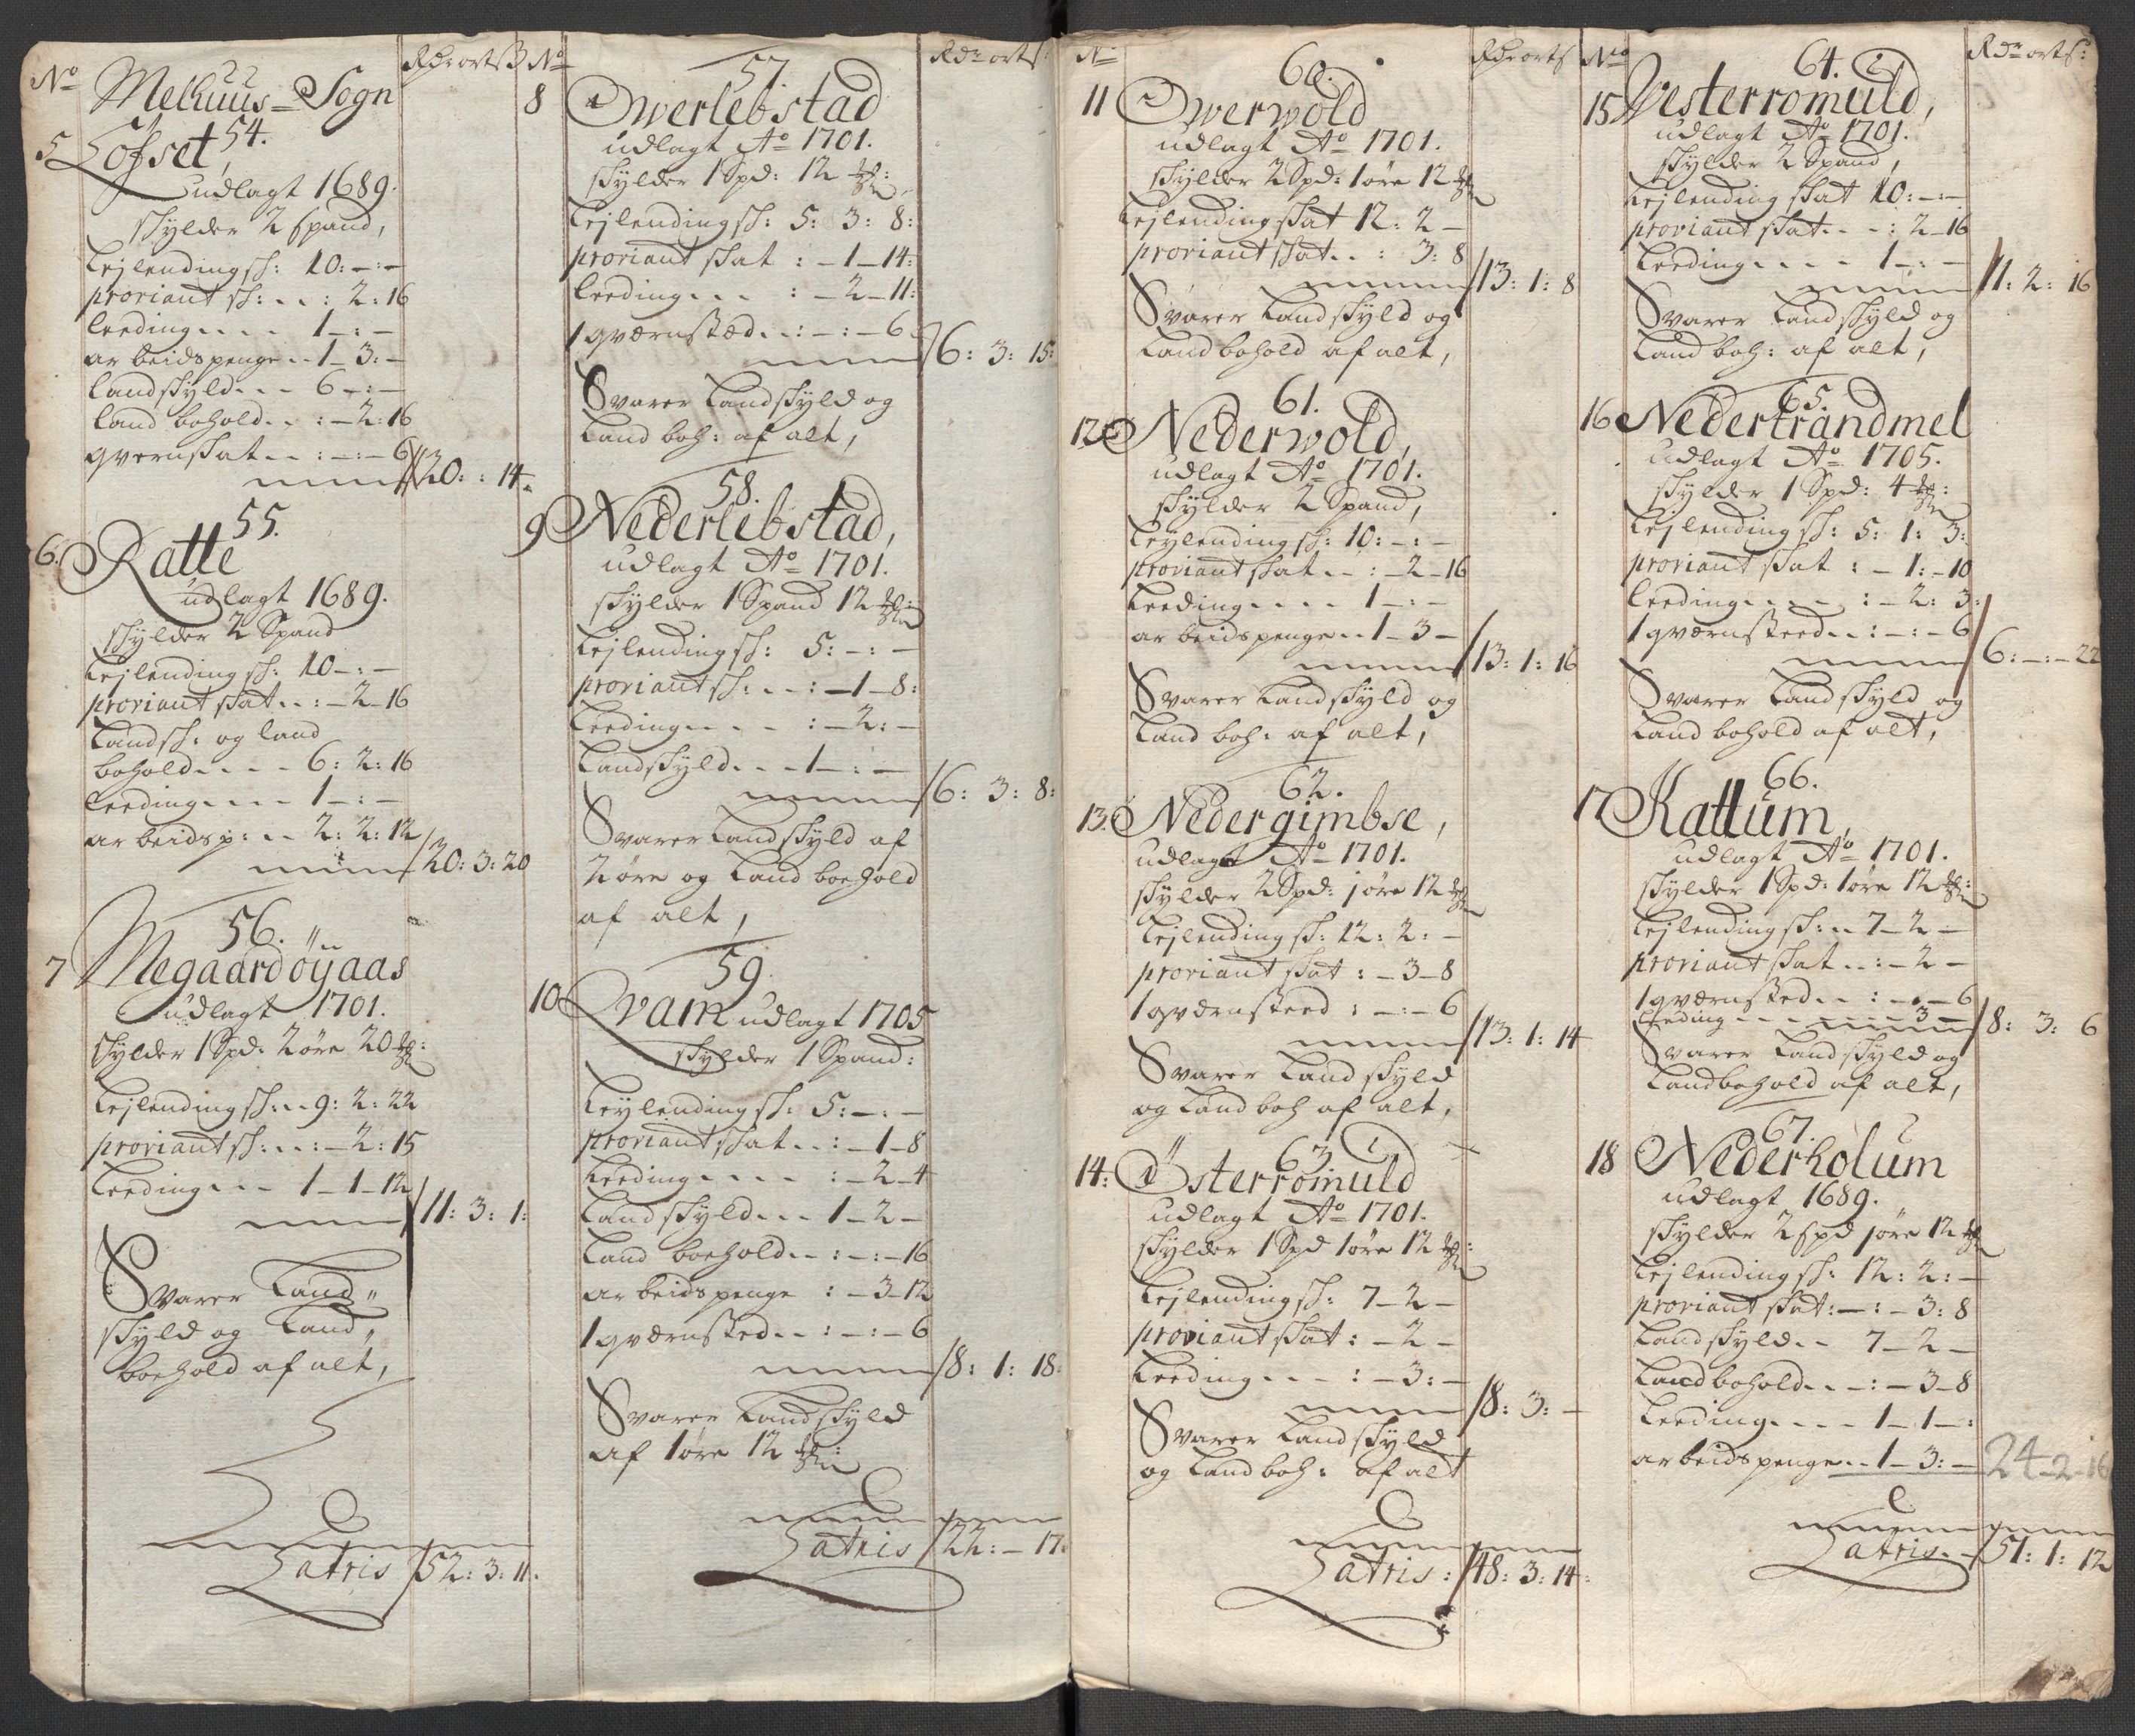 No
Melhuus-Sogn
Rdr ort ß
54.
5 Löfset,
udlagt 1689.
skylder 2 spand,
Lejlending sk: 10:-:-
proviant sk:..: 2:16
leeding.... 1-:-
arbeidspenge.. 1-3:-
landskyld... 6-:-
land bohold..:-2:16
qvernskat..:-:-6
20: : 14
55.
6. Ratte
udlagt 1689.
skylder 2 Spand
Lejlending sk: 10-:-
proviant skat..:-2-16
Landsk: og land
bohold.... 6:2:16
leeding.... 1-:-
arbeidsp:.. 2:2:12
20:3:20
56.
7 Megaardöÿaas
udlagt 1701.
skylder 1 Spd: 2 öre 20
Lejlending sk:.. 9:2:22
proviant sk:..:-2:15
Leeding... 1-1-12
11:3:1:
Svarer Land„
skyld og Land„
boehold af alt,
Latris 52:3:11.
No
Rdr ort ß
57.
8 Owerlebstad
udlagt Ao 1701.
skylder 1 Spd: 12
Lejlending sk: 5:3:8:
proviant skat :-1-14:
leeding...:-2-11:
1 qværnstæd..:-:-6
6:3:15:
Svarer Landskyld og
Land boh: af alt,
58.
9 Nederlebstad,
udlagt Ao 1701.
skylder 1 Spand 12
Lejlending sk: 5:-:-
proviant sk:..:-1-8:
Leeding....:-2:-
Landskyld... 1-:-
6:3:8:
Svarer Landskyld af
2 öre og Land boehold
af alt,
59.
10 Qvam udlagt 1705
skylder 1 Spand:
Leylending sk: 5:-:-
proviant skat..:-1-8
Leeding....:-2-4
Landskyld... 1-2-
Land boehold..:-:-16
arbeidspenge :-3-12
1 qværnsted..:-:-6
8:1:18:
Svarer Landskyld
af 1 öre 12
Latris 22:-17.
No
Rdr ort ß
60.
11 Owerwold
udlagt Ao 1701.
skylder 2 Spd: 1 öre 12
Lejlending skat 12:2-
proviant skat..: 3:8
13:1:8
Svarer Landskyld og
Land bohold af alt,
61.
12 Nederwold,
udlagt Ao 1701.
skylder 2 Spand,
Leylending sk: 10:-:-
proviant skat..:-2-16
Leeding.... 1-:-
arbeidspenge.. 1-3-
13:1:16
Svarer Landskyld og
Land boh: af alt,
62.
13. Nedergimbse,
udlagt Ao 1701.
skylder 2 Spd: 1 öre 12
Lejlending sk: 12:2:-
proviant skat :-3-8
1 qværnsteed :-:-6
13:1:14
Svarer Landskyld
og Land boh af alt,
63
14: Österromuld
udlagt Ao 1701.
skylder 1 Spd 1 öre 12
Lejlending sk: 7-2-
proviant skat :-2-
Leeding...:-3:-
8:3:-
Svarer Landskyld
og Land boh: af alt
Latris: 48:3:14:
No
Rdr ort ß:
64.
15 Westerromuld,
udlagt Ao 1701.
skylder 2 Spand,
Lejlending skat 10:-:-
proviant skat..-:2-16
Leeding.... 1-:-
11:2:16
Svarer Landskyld og
Land boh: af alt,
65.
16 Nedertrandmel
udlagt Ao 1705.
skylder 1 Spd: 4
Lejlending sk: 5:1:3:
proviant skat :-1:-10
leeding....:-2:3:
1 qværnsteed..:-:-6
6:-:-22
Svarer Landskyld og
Land bohold af alt,
66.
17 Kattum,
udlagt Ao 1701.
skylder 1 Spd: 1 öre 12
Lejlending sk:.. 7-2-
proviant skat..:-2-
1 qværnsted..:-:-6
leeding.... 3-
8:3:6
Svarer Landskyld og
Landbohold af alt,
67.
18 Nederholum
udlagt 1689.
skylder 2 spd 1 öre 12
Lejlending sk: 12:2:-
proviant skat:-:-3:8
Landskyld.. 7-2-
Landbohold...:-3-8
Leeding.... 1-1-:
arbeidspenge.. 1-3:- 24-2-16
Latris.. 51:1:12